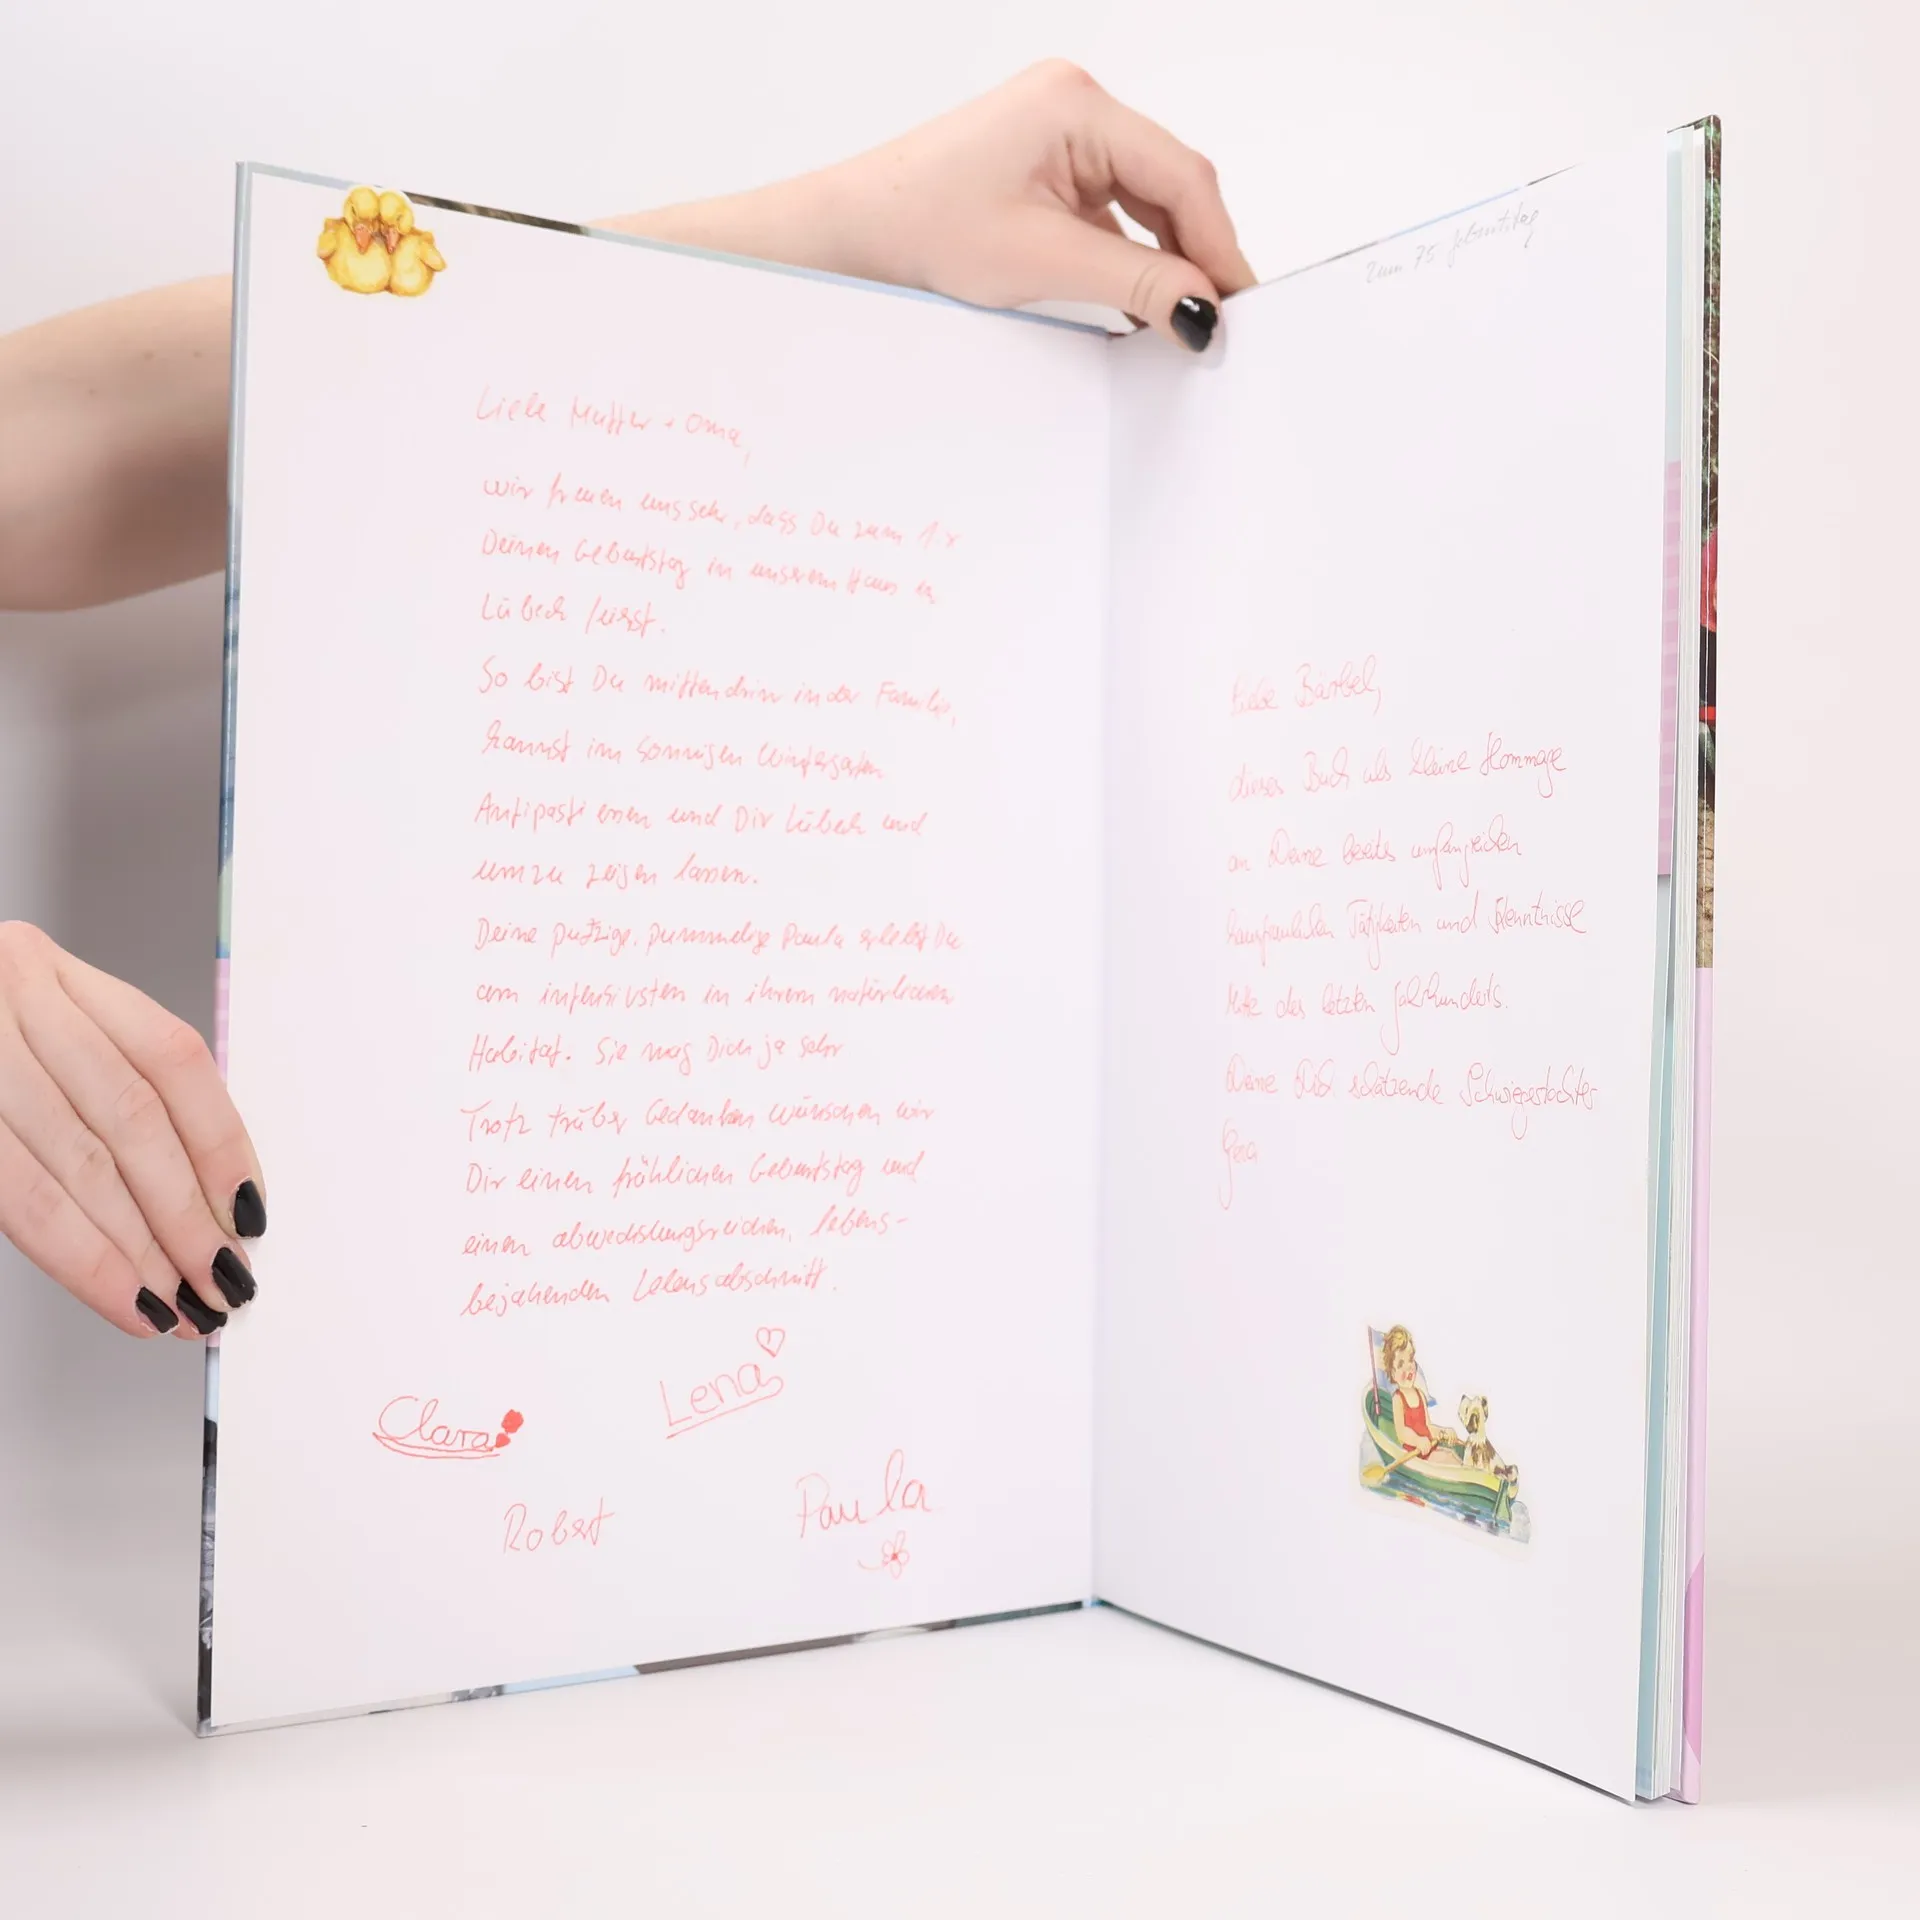 Liebe Mutter + Oma,
wir freuen uns sehr, dass Du zum 1. x
Deinen Geburtstag in unserem Haus in
Lübeck feierst.
So bist Du mittendrin in der Familie,
kannst im sonnigen Wintergarten
Antipasti essen und Dir Lübeck und
umzu zeigen lassen.
Deine putzige, pummelige Paula erlebst Du
am intensivsten in ihrem natürlichen
Habitat. Sie mag Dich ja sehr
Trotz trüber Gedanken wünschen wir
Dir einen fröhlichen Geburtstag und
einen abwechslungsreichen, lebens-
bejahenden Lebensabschnitt.
Lena
Clara
Robert
Paula
Zum 75 Geburtstag
Liebe Bärbel,
dieses Buch als kleine Hommage
an Deine bereits umfangreichen
hausfraulichen Tätigkeiten und Kenntnisse
Mitte des letzten Jahrhunderts.
Deine Dich schätzende Schwiegertochter